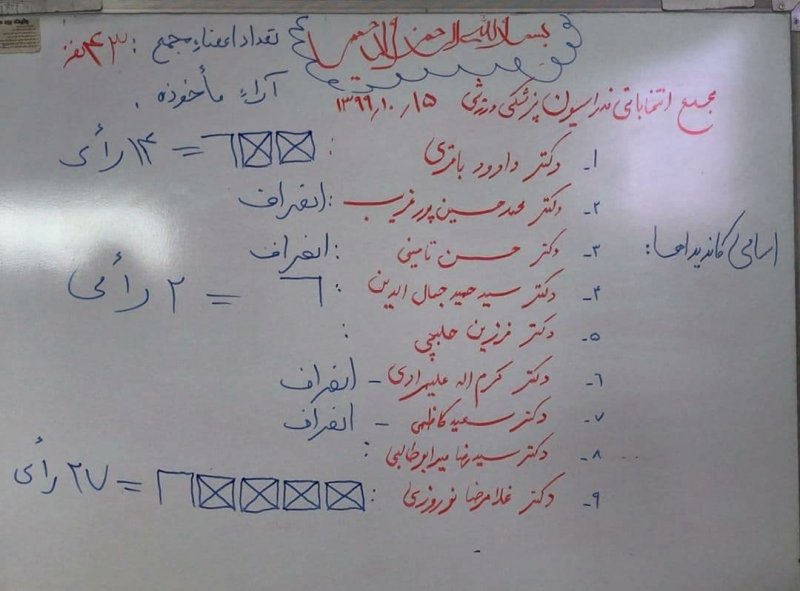 بسم الله الرحمن الرحیم
تعداد اعضاء مجمع : ۴۳ نفر
مجمع انتخاباتی فدراسیون پزشکی ورزشی ۱۳۹۹٫۱۰٫۱۵
آراء مأخوذه .
اسامی کاندیداها:
۱- دکتر داورد باقری : = ۱۴ رأی
۲- دکتر محمدحسین پورغریب : انصراف
۳- دکتر حسن تامینی : انصراف
۴- دکتر سید حمید جمال الدین : = ۲ رأی
۵- دکتر فرزین حلبچی :
۶- دکتر کرم اله علیمرادی - انصراف
۷- دکتر سعید کاظمی - انصراف
۸- دکتر سیدرضا میرابوطالبی :
۹- دکتر غلامرضا نوروزی : = ۲۷ رأی